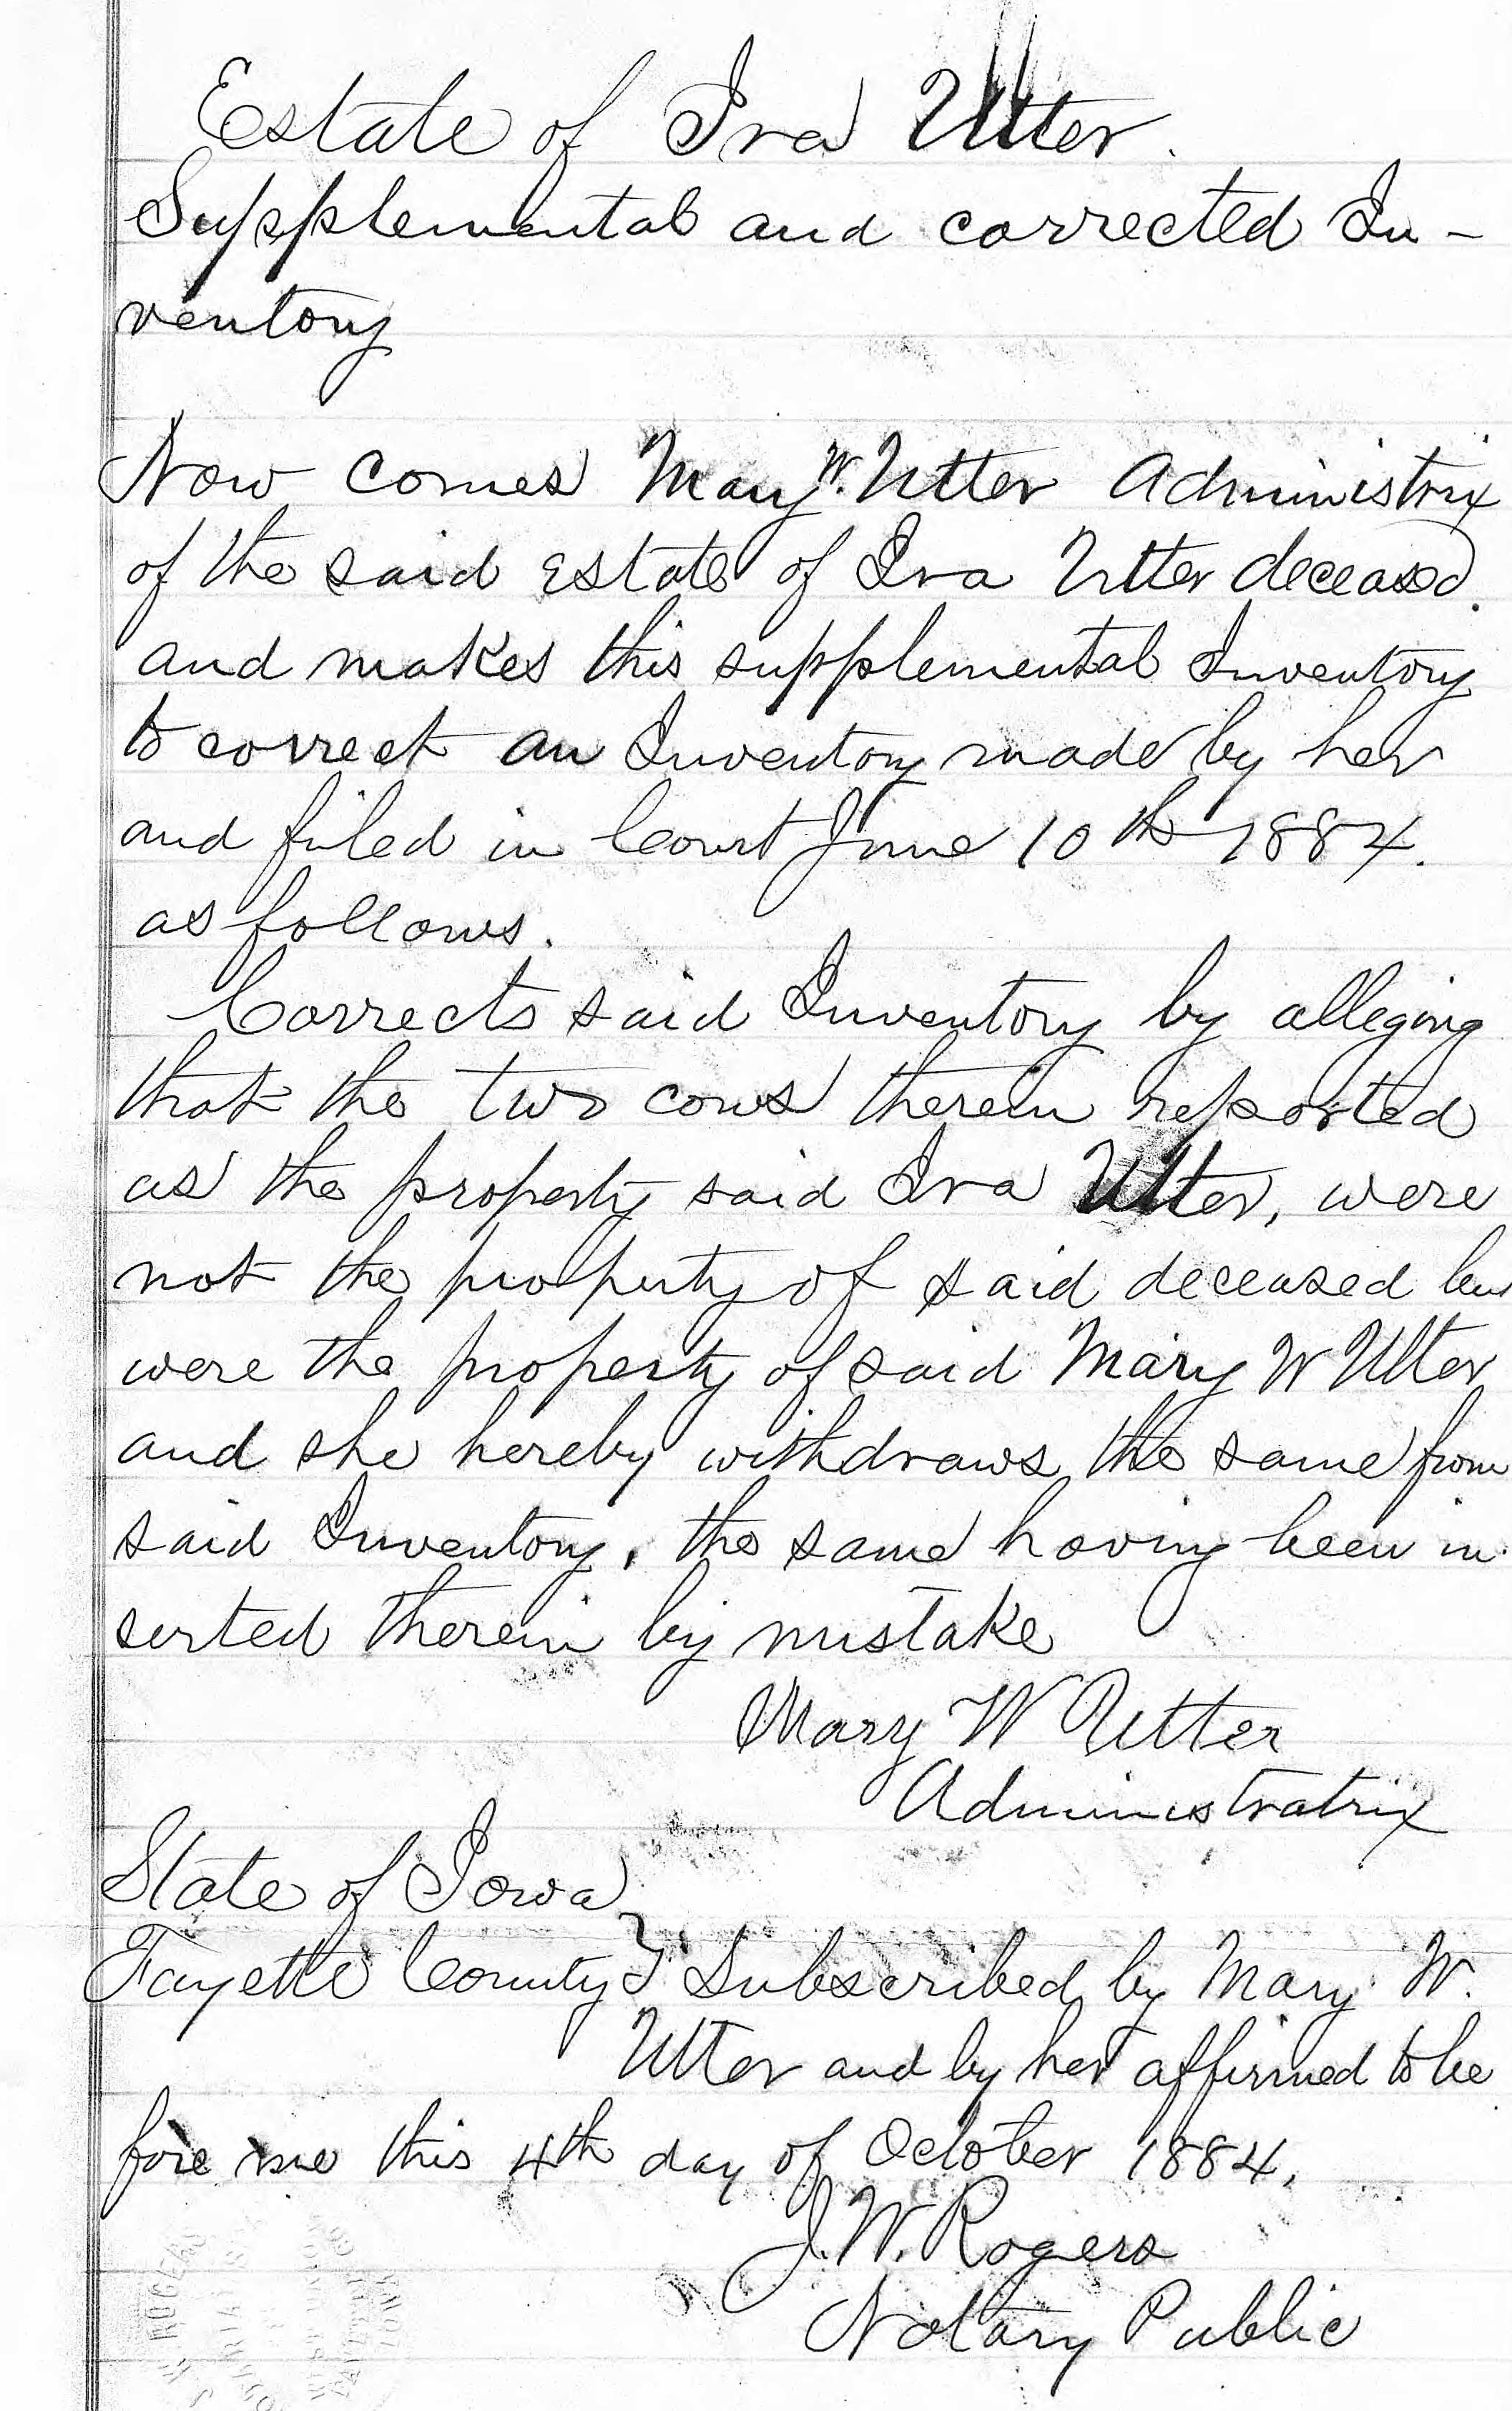 Estate of Ira Utter.
Supplemental and corrected In-
ventory
Now comes Mary W. Utter Administrix
of the said Estate of Ira Utter deceased.
and makes this supplemental Inventory
to correct an Inventory made by her
and filed in Court June 10th 1884.
as follows.
Corrects said Inventory by alleging
that the two cows therein reported
as the property said Ira Utter, were
not the property of said deceased but
were the property of said Mary W Utter
and she hereby withdraws the same from
said Inventory, the same having been in
serted therein by mistake
Mary W Utter
Administratrix
State of Iowa
Fayette County } Subscribed by Mary W.
Utter and by her affirmed to be
fore me this 4th day of October 1884.
J. W. Rogers
Notary Public